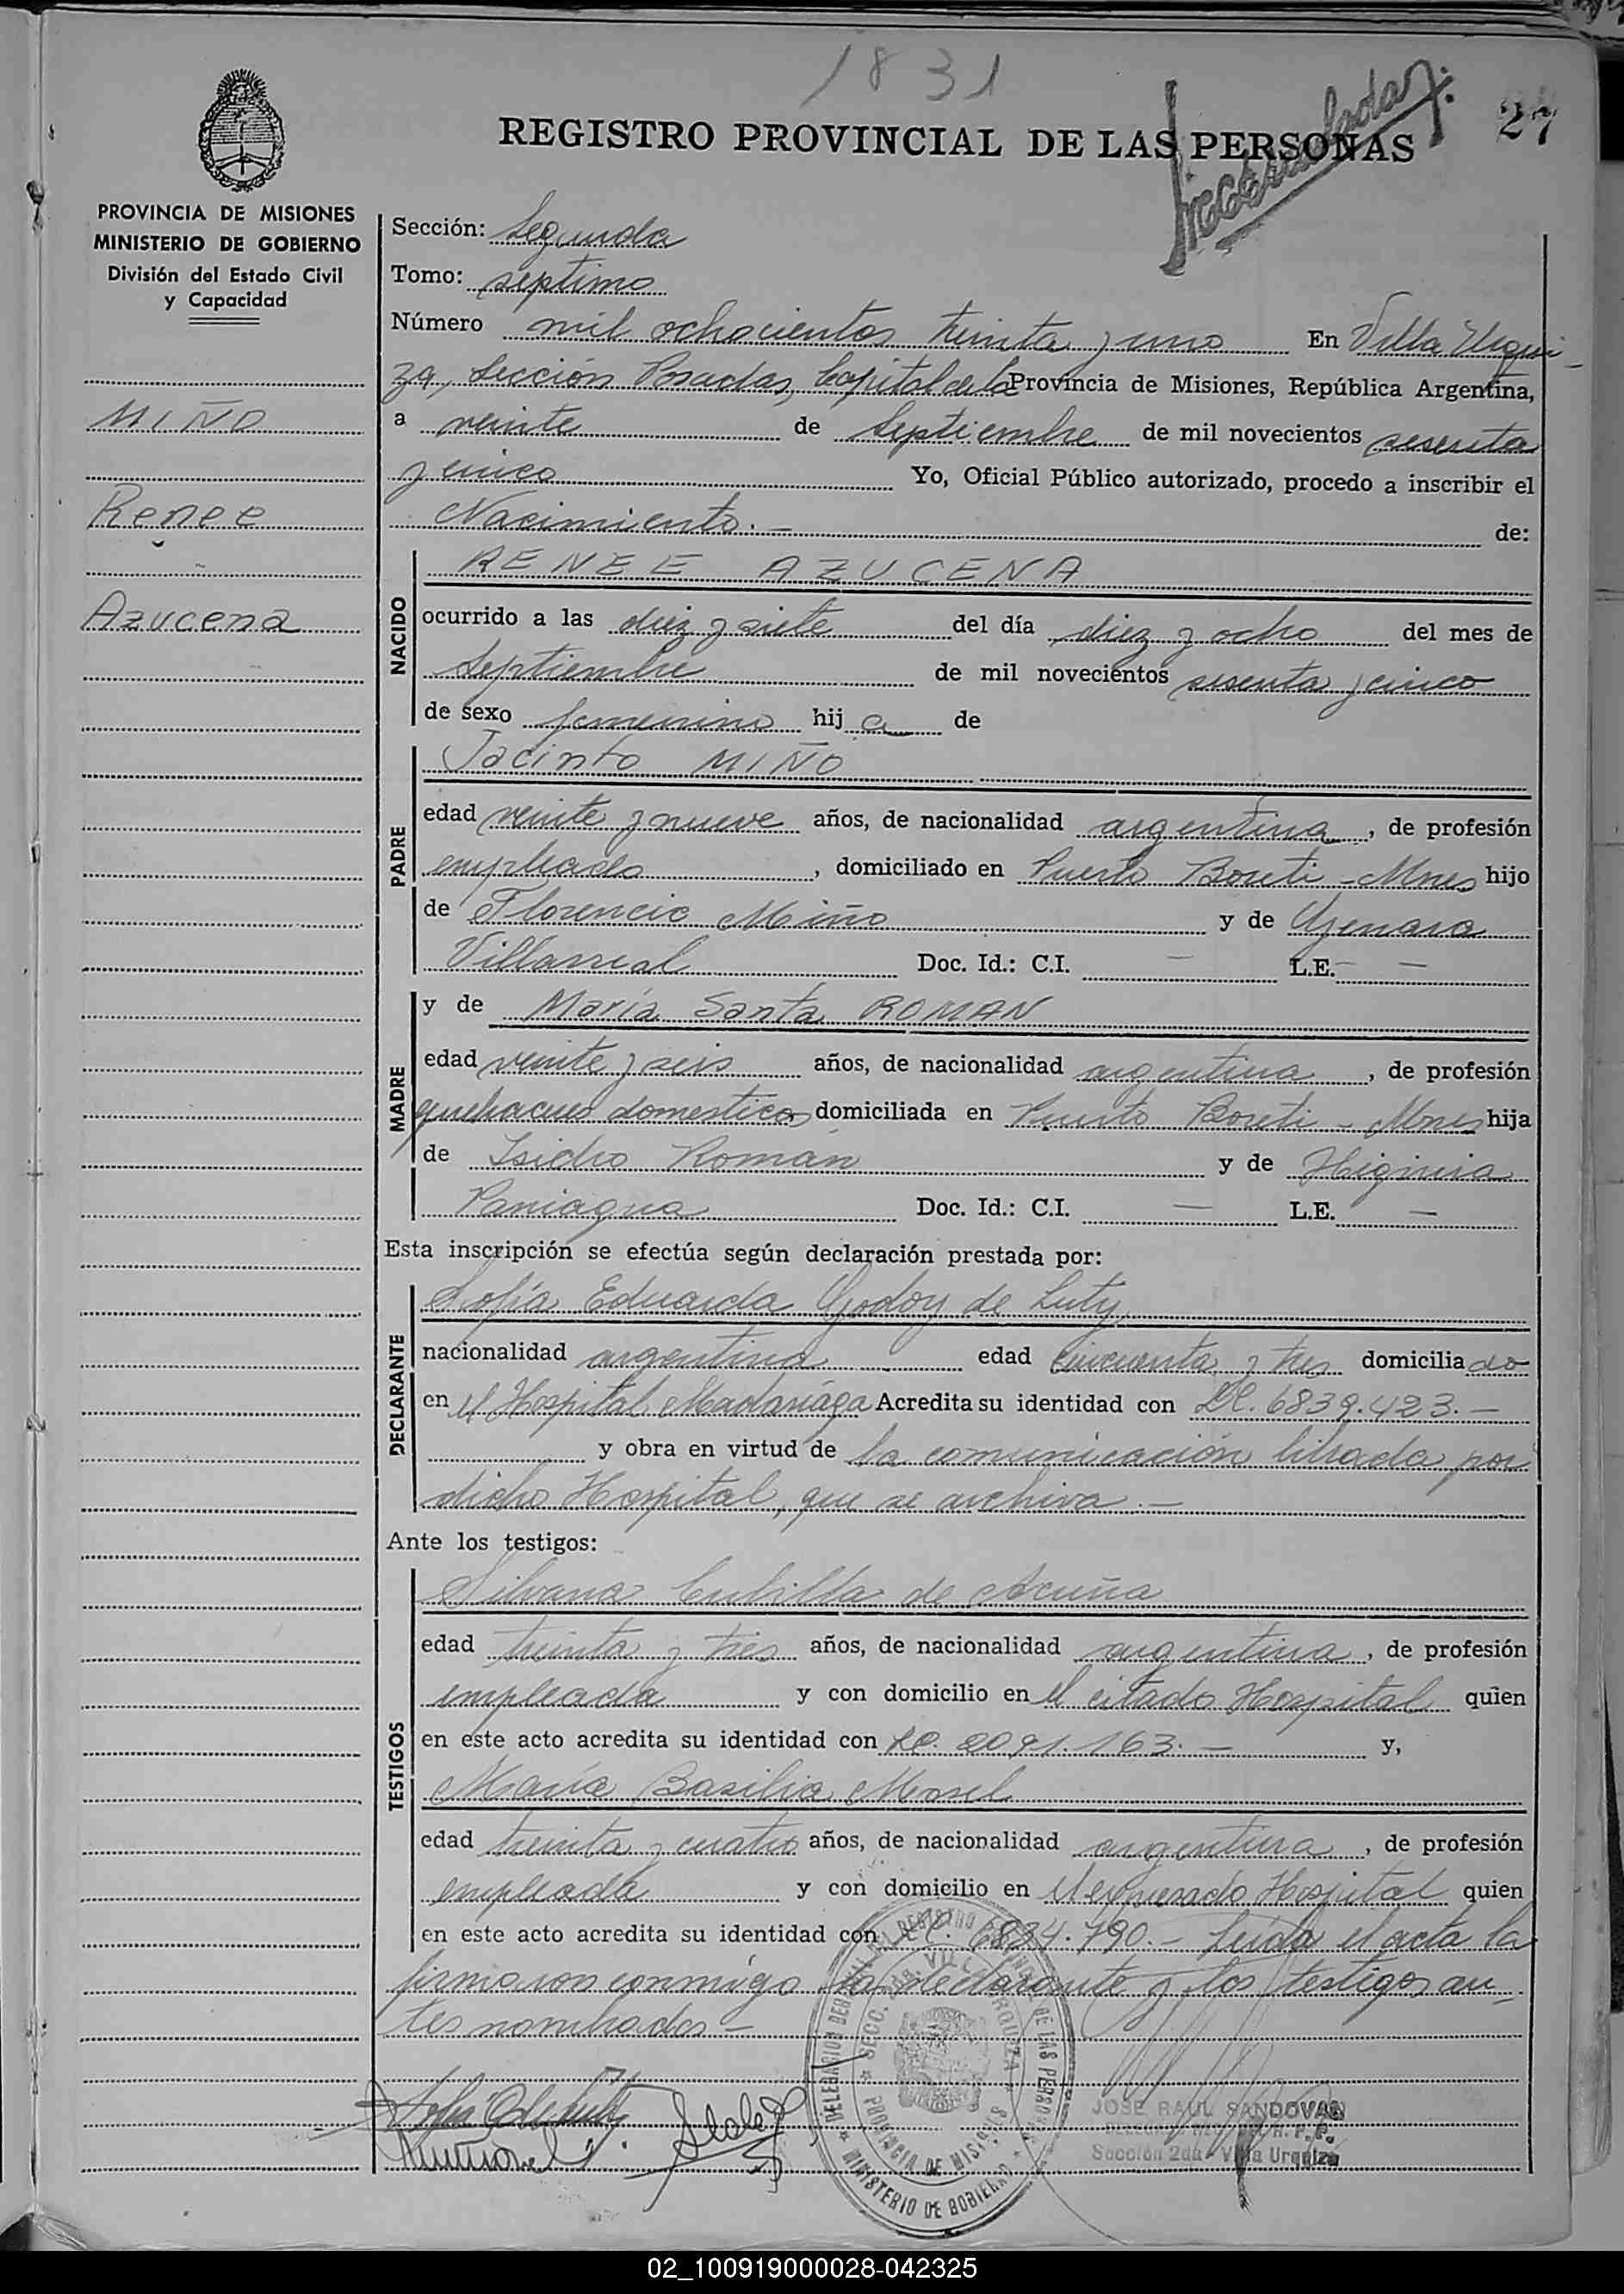 1831
27
REGISTRO PROVINCIAL DE LAS PERSONAS
PROVINCIA DE MISIONES
MINISTERIO DE GOBIERNO
División del Estado Civil
y Capacidad
MIÑO
Renee
Azucena
Sección: Segunda
Tomo: septimo
Número mil ochocientos treinta y uno En Villa Urqui-
za, Sección Posadas, Capital de la Provincia de Misiones, República Argentina,
a veinte de Septiembre de mil novecientos sesenta
y cinco Yo, Oficial Público autorizado, procedo a inscribir el
Nacimiento.- de:
NACIDO
RENEE AZUCENA
ocurrido a las diez y siete del día diez y ocho del mes de
Septiembre de mil novecientos sesenta y cinco
de sexo femenino hij a de
PADRE
Jacinto MIÑO
edad veinte y nueve años, de nacionalidad argentina, de profesión
empleado, domiciliado en Puerto Boseti - Mnes hijo
de Florencio Miño y de Genara
Villarreal Doc. Id.: C.I. — L.E. —
MADRE
y de María Santa ROMAN
edad veinte y seis años, de nacionalidad argentina, de profesión
quehaceres domesticos domiciliada en Puerto Boseti - Mnes hija
de Isidro Román y de Higinia
Paniagua Doc. Id.: C.I. — L.E. —
Esta inscripción se efectúa según declaración prestada por:
DECLARANTE
Sofía Eduarda Godoy de Luty
nacionalidad argentina edad cincuenta y tres domiciliado
en el Hospital Madariaga Acredita su identidad con LC. 6839.423.-
y obra en virtud de la comunicación librada por
dicho Hospital, que se archiva.-
Ante los testigos:
TESTIGOS
Silvana Cubilla de Acuña
edad treinta y tres años, de nacionalidad argentina, de profesión
empleada y con domicilio en el citado Hospital quien
en este acto acredita su identidad con LC. 2091.163.- y,
María Basilia Morel
edad treinta y cuatro años, de nacionalidad argentina, de profesión
empleada y con domicilio en el expresado Hospital quien
en este acto acredita su identidad con LC. 6824.790.- Leída el acta la
firmaron conmigo la declarante y los testigos an-
tes nombrados-
JOSE RAUL SANDOVAL
Sección 2da - Villa Urquiza
DELEGACION DEL REGISTRO PROVINCIAL DE LAS PERSONAS
SECC. 2da. VILLA URQUIZA
PROVINCIA DE MISIONES
MINISTERIO DE GOBIERNO
02_100919000028-042325